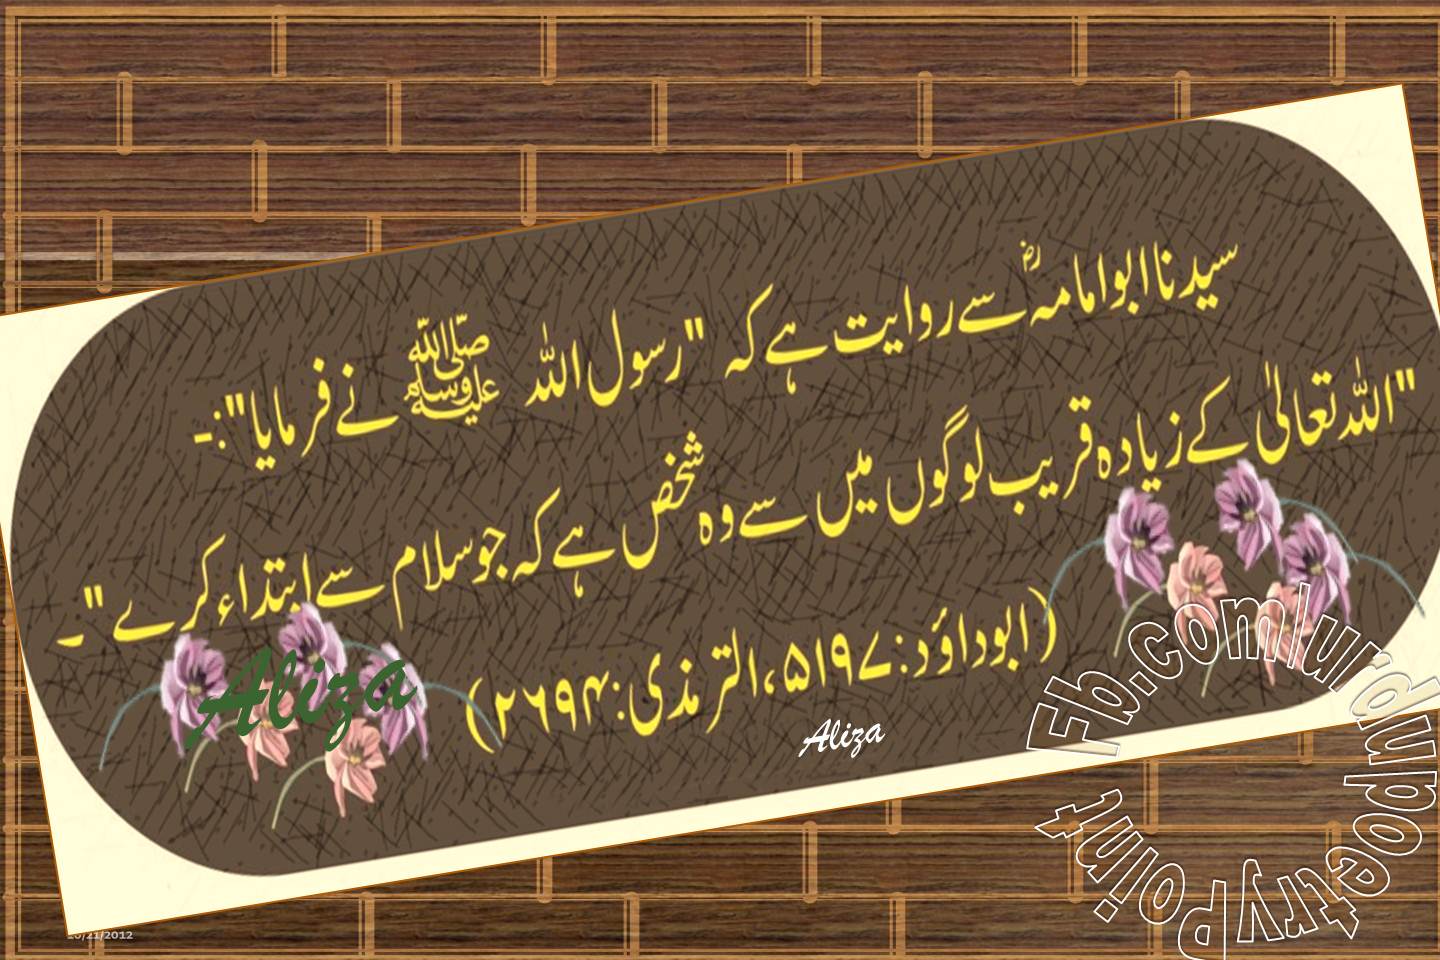 سیدنا ابو امامہؓ سے روایت ہے کہ "رسول اللہ ﷺ نے فرمایا":-
"اللہ تعالیٰ کے زیادہ قریب لوگوں میں سے وہ شخص ہے کہ جو سلام سے ابتداء کرے"۔
(ابوداؤد:۵۱۹۷، الترمذی:۲۶۹۴)
Aliza
Aliza
Fb.com/urdupoetryPoint